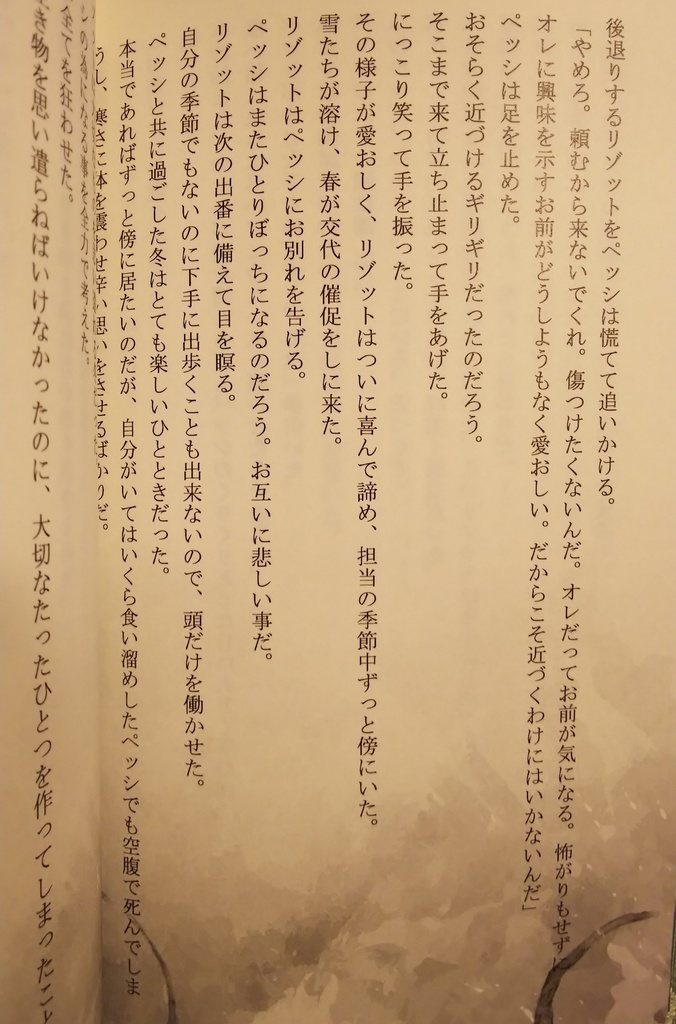 後退りするリゾットをペッシは慌てて追いかける。
「やめろ。頼むから来ないでくれ。傷つけたくないんだ。オレだってお前が気になる。怖がりもせずに
オレに興味を示すお前がどうしようもなく愛おしい。だからこそ近づくわけにはいかないんだ」
ペッシは足を止めた。
おそらく近づけるギリギリだったのだろう。
そこまで来て立ち止まって手をあげた。
にっこり笑って手を振った。
その様子が愛おしく、リゾットはついに喜んで諦め、担当の季節中ずっと傍にいた。
雪たちが溶け、春が交代の催促をしに来た。
リゾットはペッシにお別れを告げる。
ペッシはまたひとりぼっちになるのだろう。お互いに悲しい事だ。
リゾットは次の出番に備えて目を瞑る。
自分の季節でもないのに下手に出歩くことも出来ないので、頭だけを働かせた。
ペッシと共に過ごした冬はとても楽しいひとときだった。
本当であればずっと傍に居たいのだが、自分がいてはいくら食い溜めしたペッシでも空腹で死んでしま
うし、寒さに体を震わせ辛い思いをさせるばかりだ。
になる事を全力で考えた。
全てを狂わせた。
き物を思い遣らねばいけなかったのに、大切なたったひとつを作ってしまったこと